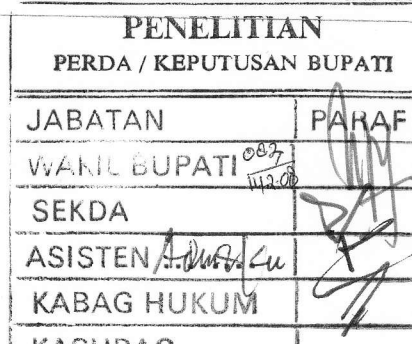 PENELITIAN
PERDA / KEPUTUSAN BUPATI
JABATAN PARAF
WAKIL BUPATI
SEKDA
ASISTEN
KABAG HUKUM